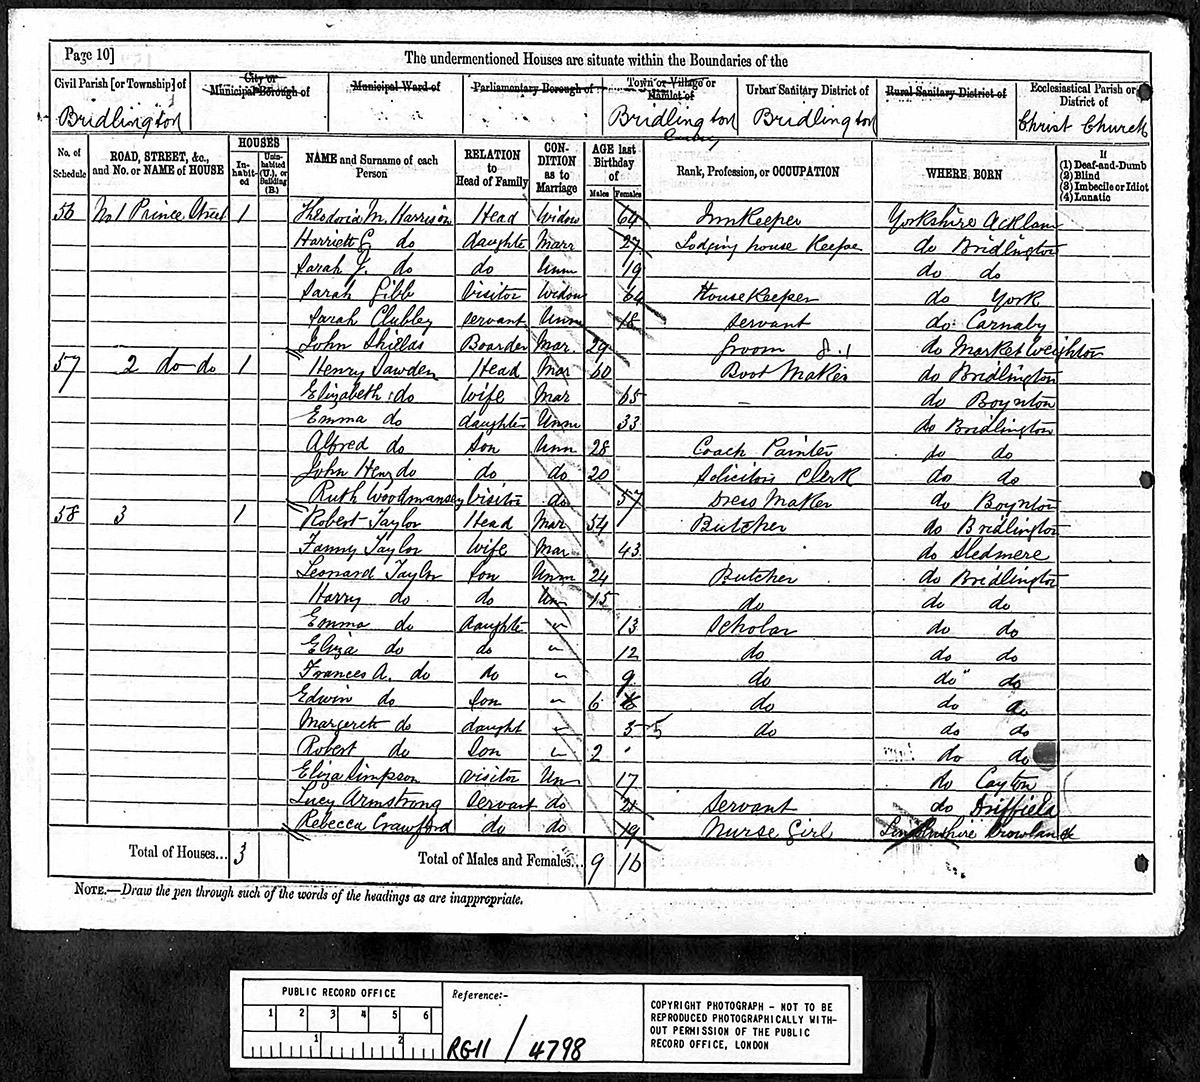 Page 10]
The undermentioned Houses are situate within the Boundaries of the
Civil Parish [or Township] of City or Municipal Borough of Municipal Ward of Parliamentary Borough of Town or Village or Hamlet of Urban Sanitary District of Rural Sanitary District of Ecclesiastical Parish or District of
Bridlington Bridlington Quay Bridlington Christ Church
No. of Schedule ROAD, STREET, &c., and No. or NAME of HOUSE HOUSES Inhabited Uninhabited (U.), or Building (B.) NAME and Surname of each Person RELATION to Head of Family CONDITION as to Marriage AGE last Birthday of Males Females Rank, Profession, or OCCUPATION WHERE BORN If (1) Deaf-and-Dumb (2) Blind (3) Imbecile or Idiot (4) Lunatic
56 No 1 Prince Street 1 M. Harrison Head Widow 64 Innkeeper Yorkshire Acklam
Harriett E do daughter Marr 27 Lodging house Keeper do Bridlington
Sarah J. do do Unm 19 do do
Sarah Gibb Visitor Widow 64 Housekeeper do York
Sarah Clubley Servant Unm 18 Servant do Carnaby
John Shields Boarder Mar. 29 Groom do Market Weighton
57 2 do do 1 Henry Sawden Head Mar 60 Boot Maker do Bridlington
Elizabeth do Wife Mar 65 – do Boynton
Emma do daughter Unm 33 do Bridlington
Alfred do Son Unm 28 Coach Painter do do
John Heny do do do 20 Solicitors Clerk do do
Ruth Woodmansey Visitor do 57 Dress Maker do Boynton
58 3 1 Robert Taylor Head Mar 54 Butcher do Bridlington
Fanny Taylor Wife Mar 43 do Sledmere
Leonard Taylor Son Unm 24 Butcher do Bridlington
Harry do do Un 15 do do do
Emma do daughter " 13 Scholar do do
Eliza do do " 12 do do do
Frances A. do do " 9 do do do
Edwin do Son " 6 do do do
Margerett do daught " 5 do do do
Robert do Son " 2 do do
Eliza Simpson visitor Un 17 do Cayton
Lucy Armstrong Servant do 21 Servant do Driffield
Rebecca Crawford do do 19 Nurse Girl Lincolnshire Crowland
Total of Houses... 3 Total of Males and Females... 9 16
NOTE.—Draw the pen through such of the words of the headings as are inappropriate.
PUBLIC RECORD OFFICE
1 2 3 4 5 6
1 2
Reference:-
RG11 / 4798
COPYRIGHT PHOTOGRAPH - NOT TO BE
REPRODUCED PHOTOGRAPHICALLY WITH-
OUT PERMISSION OF THE PUBLIC
RECORD OFFICE, LONDON